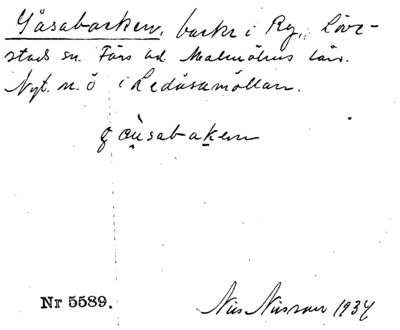 Gåsabacken, backe i Ry, Löve-
stads sn. Färs hd Malmöhus län.
Nyt. n. ö i Ledåsamöllan.
gåu̯sabaken
Nr 5589. Nils Nilsson 1934